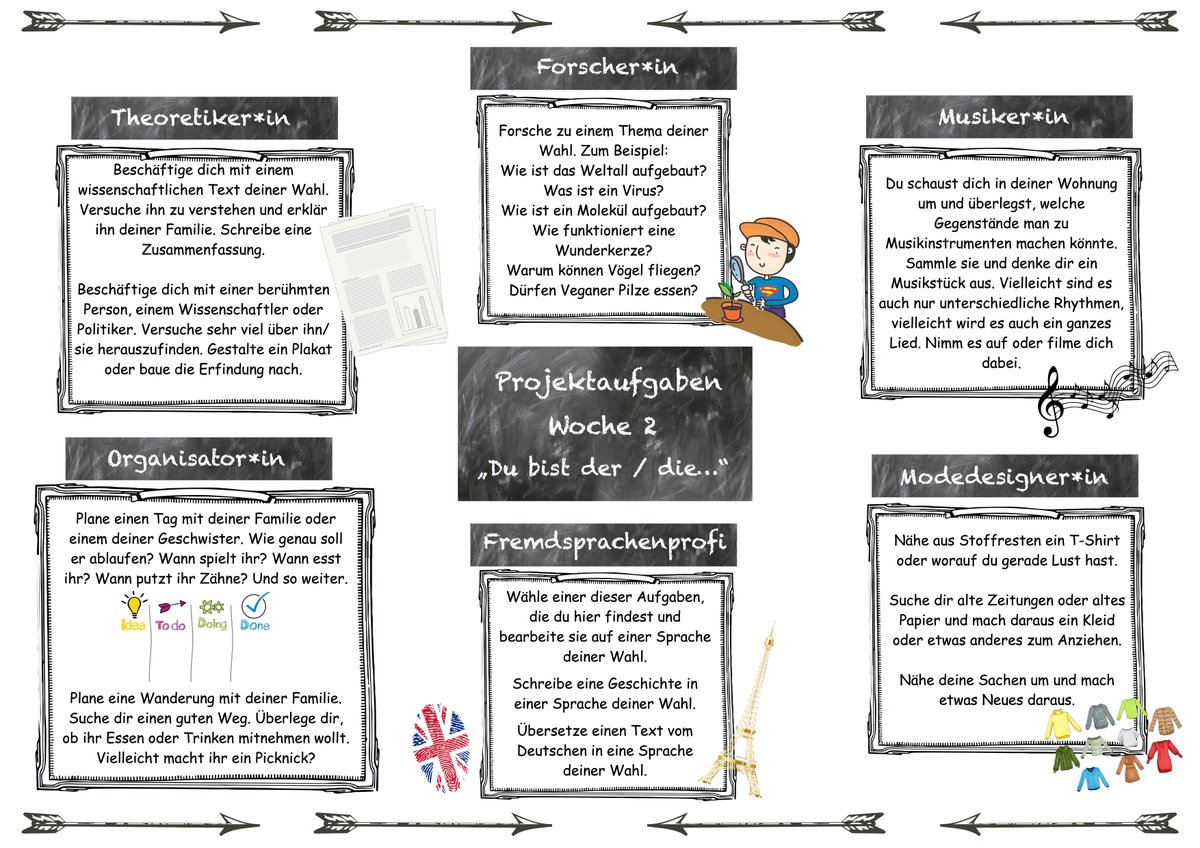 Theoretiker*in
Beschäftige dich mit einem
wissenschaftlichen Text deiner Wahl.
Versuche ihn zu verstehen und erklär
ihn deiner Familie. Schreibe eine
Zusammenfassung.
Beschäftige dich mit einer berühmten
Person, einem Wissenschaftler oder
Politiker. Versuche sehr viel über ihn/
sie herauszufinden. Gestalte ein Plakat
oder baue die Erfindung nach.
Forscher*in
Forsche zu einem Thema deiner
Wahl. Zum Beispiel:
Wie ist das Weltall aufgebaut?
Was ist ein Virus?
Wie ist ein Molekül aufgebaut?
Wie funktioniert eine
Wunderkerze?
Warum können Vögel fliegen?
Dürfen Veganer Pilze essen?
Musiker*in
Du schaust dich in deiner Wohnung
um und überlegst, welche
Gegenstände man zu
Musikinstrumenten machen könnte.
Sammle sie und denke dir ein
Musikstück aus. Vielleicht sind es
auch nur unterschiedliche Rhythmen,
vielleicht wird es auch ein ganzes
Lied. Nimm es auf oder filme dich
dabei.
Projektaufgaben
Woche 2
„Du bist der / die...“
Organisator*in
Plane einen Tag mit deiner Familie oder
einem deiner Geschwister. Wie genau soll
er ablaufen? Wann spielt ihr? Wann esst
ihr? Wann putzt ihr Zähne? Und so weiter.
Idea To do Doing Done
Plane eine Wanderung mit deiner Familie.
Suche dir einen guten Weg. Überlege dir,
ob ihr Essen oder Trinken mitnehmen wollt.
Vielleicht macht ihr ein Picknick?
Fremdsprachenprofi
Wähle einer dieser Aufgaben,
die du hier findest und
bearbeite sie auf einer Sprache
deiner Wahl.
Schreibe eine Geschichte in
einer Sprache deiner Wahl.
Übersetze einen Text vom
Deutschen in eine Sprache
deiner Wahl.
Modedesigner*in
Nähe aus Stoffresten ein T-Shirt
oder worauf du gerade Lust hast.
Suche dir alte Zeitungen oder altes
Papier und mach daraus ein Kleid
oder etwas anderes zum Anziehen.
Nähe deine Sachen um und mach
etwas Neues daraus.